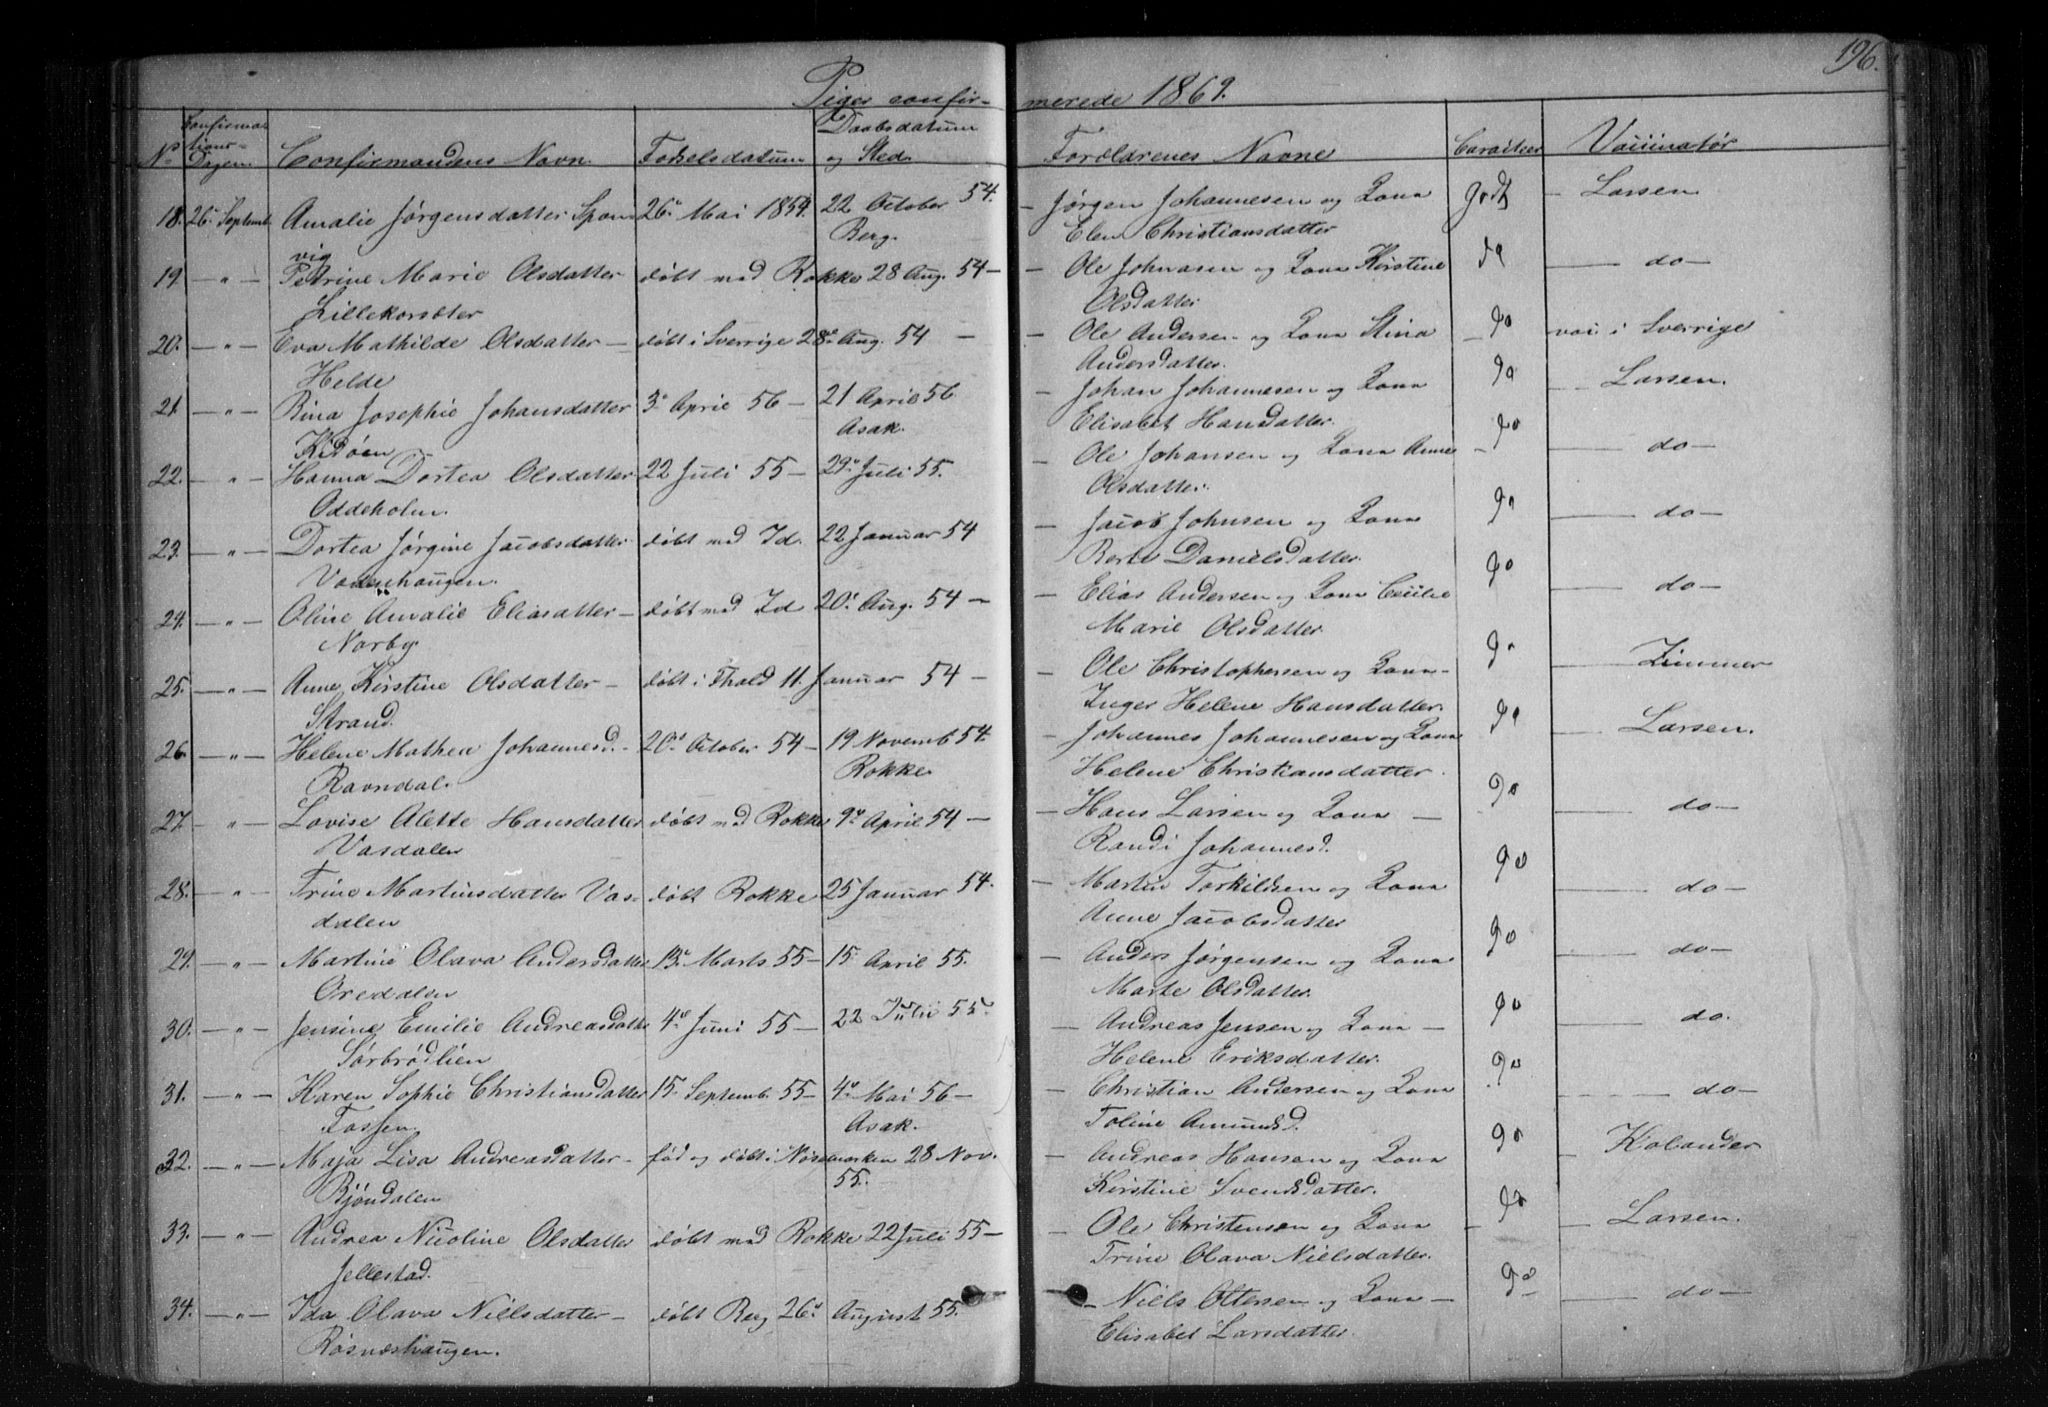 196.
Piger confir- merede 1869.
No Confirmationsdagen Confirmandens Navn Fødselsdatum Daabsdatum og Sted. Forældrenes Navne Caracteer Vaccinatør
18. 26de Septemb. Amalie Jørgensdatter Spon- 26de Mai 1854. 22 October 54. – Jørgen Johannesen og Kone Godt – Larsen
vig Berg. Elen Christiansdatter
19. – " – Petrine Marie Olsdatter døbt mod Rokke 28 Aug. 54 – – Ole Johnasen og Kone Kirstine do – do –
Lillekorsæter Olsdatter
20. – " – Eva Mathilde Olsdatter – døbt i Sverrige 28de Aug. 54 – – Ole Andersen og Kone Stina do vac i Sverrige
Helde Andersdatter.
21. – " – Rina Josephie Johansdatter 3de April 56 – 21 April 56 – Johan Johannesen og Kone do – Larsen.
Kidöen Asak. Elisabet Hansdatter.
22. – " – Hanna Dortea Olsdatter 22 Juli 55 – 29de Juli 55. – Ole Johansen og Kone Anne do – do –
Oddeholen. Olsdatter.
23. – " – Dortea Jørgine Jacobsdatter døbt mod Id. 22 Januar 54 – Jacob Johnsen og Kone do – do –
Vadenhaugen. Berte Danielsdatter.
24. – " – Oline Amalie Eliasdatter – døbt mod Id 20de Aug. 54 – – Elias Andersen og Kone Cecilie do – do –
Norby Marie Olsdatter.
25. – " – Anne Kirstine Olsdatter – døbt i Thald 11. Januar 54 – – Ole Christophersen og Kone – do – Zimmer
Strand. Inger Helene Hansdatter.
26. – " – Helene Mathea Johannesd. – 20de October 54 – 19 Novemb 54. – Johannes Johannesen og Kone do – Larsen.
Ravndal. Rokke. Helene Christiansdatter.
27. – " – Lovise Alette Hansdatter døbt mod Rokke 9de April 54 – – Hans Larsen og Kone – do – do –
Vasdalen Randi Johannesd.
28. – " – Trine Martinsdatter Vas- døbt Rokke 25 Januar 54. – Martin Torkildsen og Kone do – do –
dalen Anne Jacobsdatter
29. – " – Martine Olava Andersdatter 13de Marts 55 – 15 April 55. – Anders Jørgensen og Kone do – do –
Oreddlen Marte Olsdatter.
30. – " – Jensine Emilie Andreasdatter 4de Juni 55 – 22 Julii 55. – Andreas Jensen og Kone – do – do.
Sørbrødlien Helene Eriksdatter.
31. – " – Karen Sophie Christiansdatter 15. Septemb. 55 – 4de Mai 56 – – Christian Andersen og Kone do – do –
Fossen. Asak. Toline Amundsd.
32. – " – Maja Lisa Andreasdatter – fød og døbt i Nösemarken 28 Nov. – Andreas Hansen og Kone do – Kolander
Bjöndalen 55. Kirstine Svendsdatter.
33. – " – Andrea Nicoline Olsdatter døbt mod Rokke 22 Juli 55 – – Ole Christensen og Kone – do – Larsen.
Jellestad. Trine Olava Nielsdatter.
34. – " – Ida Olava Nielsdatter – døbt Berg 26de August 55. – Niels Ottersen og Kone – do – do –
Røsnæshaugen. Elisabet Larsdatter.